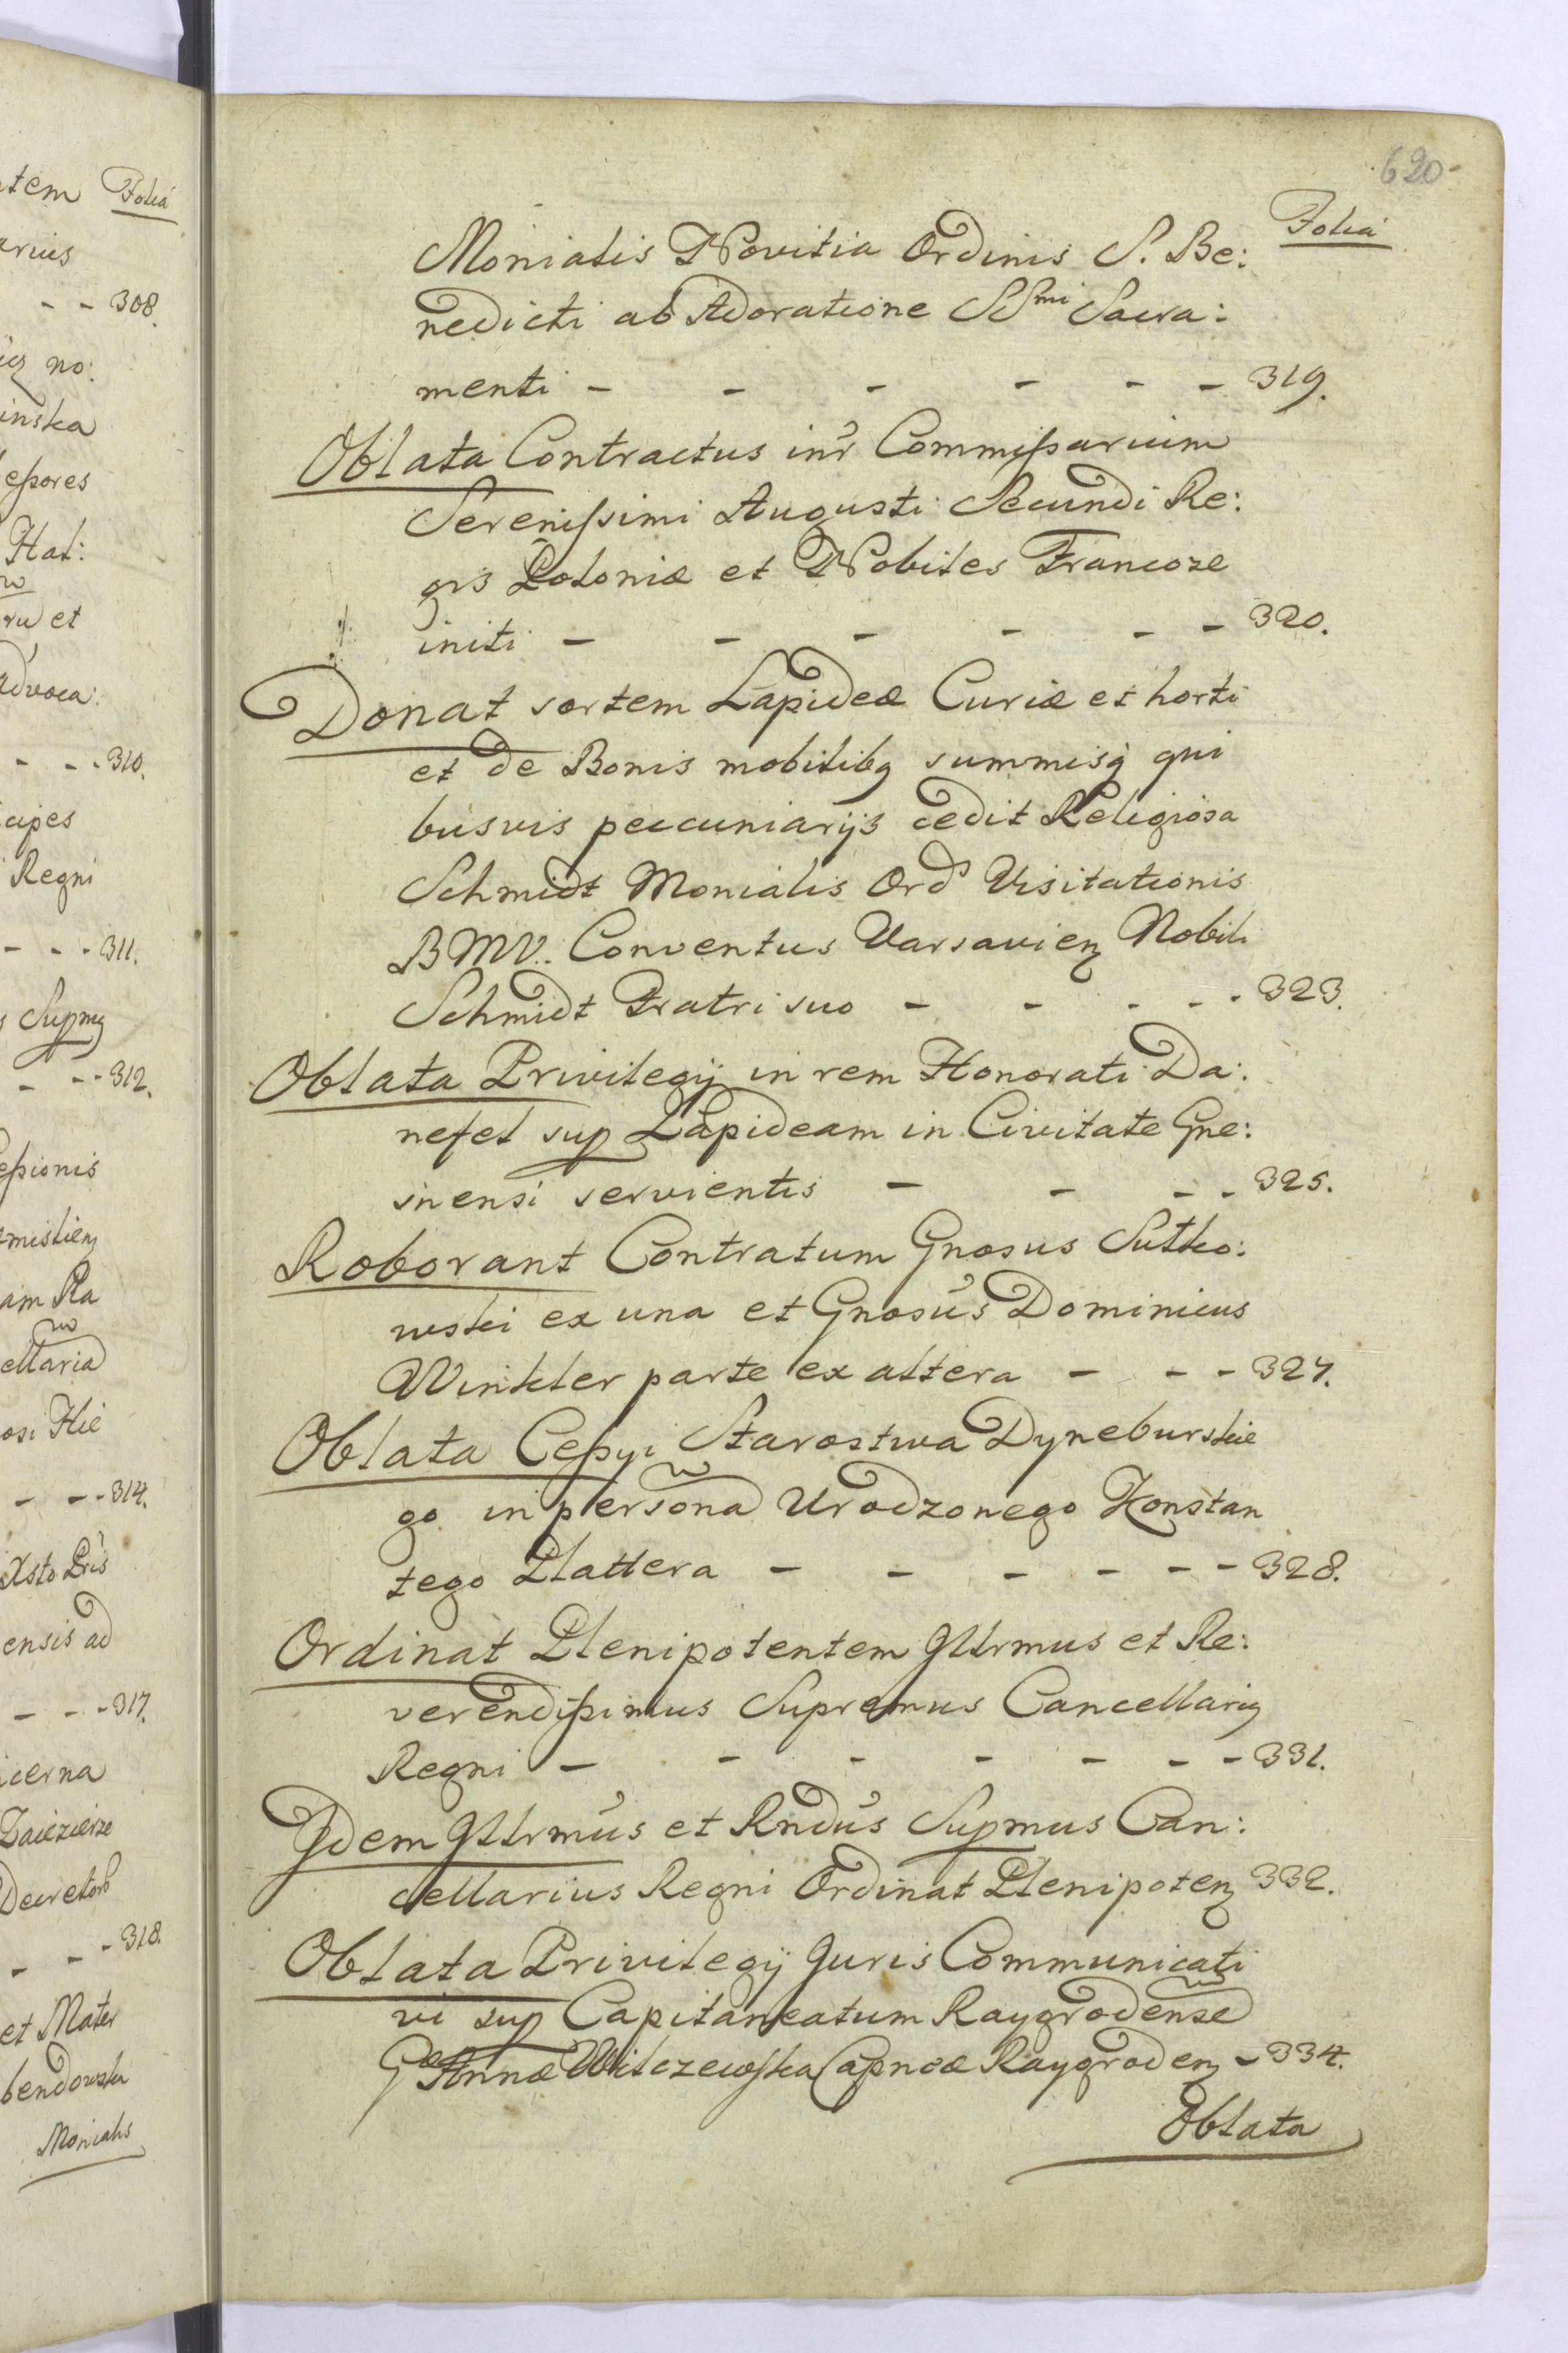 tem Folia
arius
- - 308.
no:
inska
eßores
Hat:
ru et
advoca:
- - - 310.
cipes
Regni
- - - 311.
Supmq
- - - 312.
eßionis
am Ra
ellaria
osi Hie
- - - 314.
Xsto Pris
ensis ad
- - - 317.
icerna
Zaiezierze
Decretor
- - - 318.
et Mater
bendowska
Monialis
620
Folia
Monialis Novitia Ordinis S. Be:
nedicti ab Adoratione SSmi Sacra:
menti - - - - - - 319.
Oblata Contractus intr Commißarium
Serenißimi Augusti Secundi Re:
gis Poloniæ et Nobiles Francoze
initi - - - - - - 320.
Donat sortem Lapideæ Curiæ et horti
et de Bonis mobilibq summisq qui
busvis peccuniarijs cedit Religiosa
Schmidt Monialis Ord Visitationis
BMV. Conventus Varsavien Nobili
Schmidt Fratri suo - - - - - 323.
Oblata Privilegij in rem Honorati Da:
nefel sup Lapideam in Civitate Gne:
snensi servientis - - - - 325.
Roborant Contratum Gnosus Sutko:
wski ex una et Gnosus Dominicus
Winkler parte ex altera - - - 327.
Oblata Ceßyi Starostwa Dyneburskie
go in persona Urodzonego Konstan
tego Plattera - - - - - - 328.
Ordinat Plenipotentem Jllrmus et Re:
verendißimus Supremus Cancellariq
Regni - - - - - - - 331.
Jdem Jllrmus et Rndus Supmus Can:
cellarius Regni Ordinat Plenipoten 332.
Oblata Privilegij Juris Communicati
vi sup Capitaneatum Raygrodense
G Annæ Wilczewska Capneæ Raygroden - 334.
Oblata